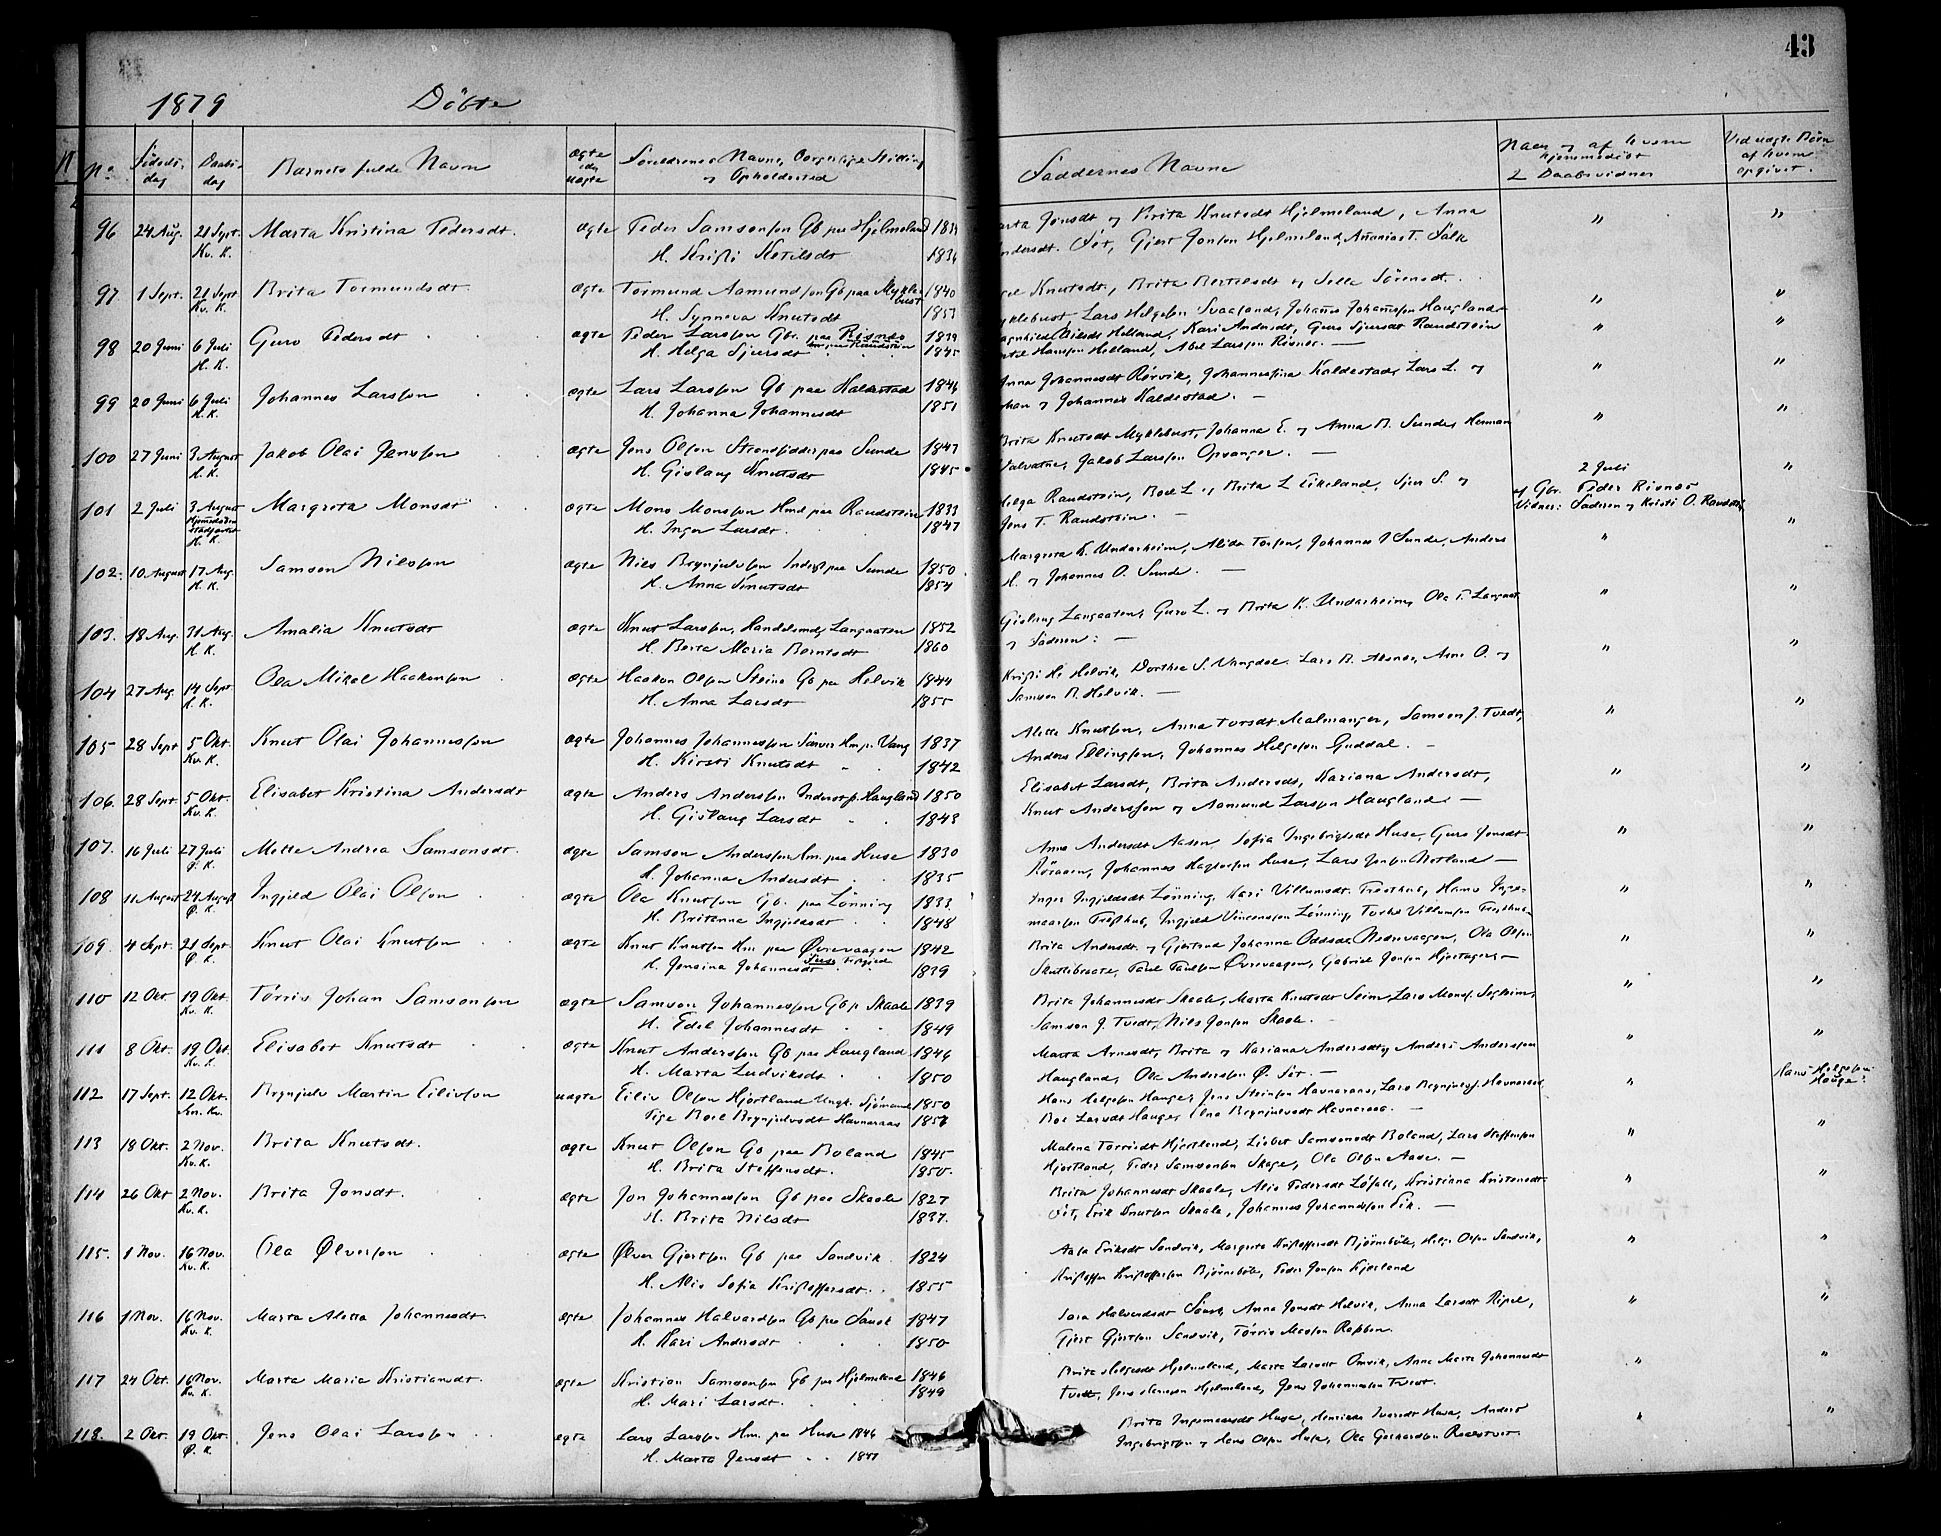 43
1879 Döbte
No Födsels- dag Daabs- dag Barnets fulde Navn Ægte eller uægte Forældrenes Navne, Borgerlige Stilling og Opholdssted Faddernes Navne Naar og af hvem hjemmedöbt 2 Daabsvidner Ved uægte Börn af hvem opgivet.
96 24 Aug. 21 Sept. Kv. K. Marta Kristina Pedersdt. ægte Peder Samsonsen Gb paa Hjelmeland
H. Kristi Ketilsdt 1836
Jonsdt og Brita Knutsdt Hjelmeland, Anna
Gjert Jonsen Hjelmeland, Ananias T. " "
97 1 Sept. 21 Sept Kv. K. Brita Tormundsdt ægte Tormund Aamundsen Gb paa Myklebust 1840
H. Synneva Knutsdt 1851
Knutsdt, Brita Bertelsdt og Sörensdt.
Lars Helgesen Svaasand, Johanes Johanessen Haugland " "
98 20 Juni 6 Juli H. K. Guro Pedersdt ægte Peder Larssen Gbr. paa Risnes 1839
H. Helga Sjursdt 1845
Helland, Kari Andersdt, Guro Sjursdt Raudstein
Hanssen Helland, Abel Larssen Risnes. — " "
99 20 Juni 6 Juli H. K. Johannes Larssen ægte Lars Larssen Gb paa Kaldestad 1846
H. Johanna Johannesdt 1851
Anna Johannesdt Rörvik, Johannessina Kaldestad, Lars L. og
Johan og Johannes Kaldestad. — " "
100 27 Juni 3 August H. K. Jakob Olai Jenssen ægte Jens Olsen Strandsidder paa Sunde 1847
H. Gislaug Knutsdt 1845
Brita Knutsdt Myklebust, Johanna E. og Anna B. Sunde, Herman
Valvatne, Jakob Larssen Opsanger. — " "
101 2 Juli 3 August H. K. Margreta Monsdt ægte Mons Monssen Hmd paa Raudstein 1833
H. Inger Larsdt. 1847
Helga Raudstein, Boel L. og Brita L Eikeland, Sjur S. og
Jens T. Raudstein. —
2 Juli
af Gbr. Peder Risnes
Vidner: Faderen og Kristi O. Raudstein "
102. 10 August 17 Aug. H. K. Samson Nilssen ægte Nils Brynjulvssen Inderst paa Sunde 1850
H. Anna Knutsdt 1854
Margreta K. Undarheim, Alida Torsen, Johannes Sunde, Anders
H. og Johannes O. Sunde. — " "
103. 18 Aug. 31 Aug. H. K. Amalia Knutsdt ægte Knut Larssen, Handelsmd, Langaaten 1852
H. Berta Maria Berntsdt 1860
Gislaug Langaaten, Guro L. og Brita K. Undarheim, Ola T. Langaat
og Faderen: — " "
104 27 Aug. 14 Sept H. K. Ola Mikal Haakonsen ægte Haakon Olsen Steine Gb paa Helvik 1844
H. Anna Larsdt 1855
Kristi H. Helvik, Dorthea S. Vangdal, Lars B. Alsaker, Arne O. og
Samson B. Helvik. — " "
105 28 Sept 5 Okt. Kv. K. Knut Olai Johannessen ægte Johannes Johannessen Hm p. Vang 1837
H. Kirsti Knutsdt 1842
Alette Knutsen, Anna Torsdt Malmanger, Samson J. Tvedt,
Anders Ellingsen, Johannes Helgesen Guddal. — " "
106. 28 Sept. 5 Okt. Kv. K. Elisabet Kristina Andersdt ægte Anders Anderssen Inderst p. Haugland 1850
H. Gislaug Larsdt 1843
Elisabet Larsdt, Brita Andersdt, Kariana Andersdt,
Knut Anderssen og Aamund Larssen Haugland. — " "
107. 16 Juli 27 Juli Ø. K. Mette Andrea Samsonsdt. ægte Samson Anderssen Hm. paa Huse 1830
H. Johanna Andersdt 1835
Anna Andersdt Aasen Sofia Ingebrigtsdt Huse, Guro Jonsdt
Röraasen, Johannes Huse, Lars Jonsen Netland — " "
108 11 August 24 August Ø. K. Ingjeld Olai Olsen ægte Ola Knutsen Gb. paa Lönning 1833
H. Britanna Ingjeldsdt 1848
Inger Ingjeldsdt Lönning, Kari Villumsdt Træsthus, Hans Inge-
marsen Træsthus, Ingjeld Vincenssen Lönning, Torkel Villumsen Træsthus " "
109. 4 Sept. 21 Sept. Ø. K. Knut Olai Knutsen ægte Knut Knutsen Hm paa Øvrevaagen 1842
H. Jensina Johannesdt 1839
Brita Andersdt og Gjertrud Johanna Oddsdt Nedrevaagen, Ola Olsen
Paul Paulsen Øvrevaagen, Gabriel Jonsen Hjortager — " "
110 12 Okt 19 Okt. Kv. K. Törris Johan Samsonsen ægte Samson Johannessen Gb p. Skaale 1839
H. Edel Johannesdt 1849
Brita Johannesdt Skaale, Marta Knutsdt Seim, Lars Monss. Seglheim,
Samson J. Tvedt, Nils Jonsen Skaale. " "
111 8 Okt. 19 Okt. Kv. K. Elisabet Knutsdt ægte Knut Anderssen Gb paa Haugland 1846
H. Marta Ludviksdt 1850
Marta Arnesdt, Brita og Kariana Andersdt, Anders Anderssen
Haugland, Ola Anderssen Ø. — " "
112 17 Sept. 12 Okt. Brynjulv Martin Eilivsen uægte Eiliv Olsen Hjortland Ungk. Sjömand 1850
Pige Boel Brynjulvsdt Havneraas
Hans Helgesen Hauge, Jens Steinsen Havneraas, Lars Brynjulvs. Havneraas
Boe Larsdt Hauge, Elna Brynjulvsdt Havneraas. — " Hans Helgesen Hauge.
113 18 Okt. 2 Nov. Kv. K. Brita Knutsdt. ægte Knut Olsen Gb paa Boland 1845
H. Brita Steffensdt. 1850.
Malena Torrisdt Hjortland, Lisbet Samsonsdt Boland, Lars Steffensen
Hjortland, Peder Samsonsen Skage, Ola Olsen Aase. — " "
114 26 Okt 2 Nov. Kv. K. Brita Jonsdt. ægte Jon Johannessen Gb paa Skaale 1827
H. Brita Nilsdt 1837.
Brita Johannesdt Skaale, Alis Pedersdt Löfall, Kristianna Kristensdt
Erik Knutsen Skaale, Johannes Johannessen Eik. — " "
115. 1 Nov. 16 Nov. Kv. K. Ola Ølversen ægte Ølver Gjertsen Gb paa Sandvik 1824
H. Alis Sofia Kristoffersdt. 1855
Aasa Eriksdt Sandvik, Margreta Kristoffersdt Björneböle, Helge Olsen Sandvik,
Kristoffer Kristoffersen Björneböle, Peder Jonsen Kjærland " "
116 1 Nov. 16 Nov. Kv. K. Marta Aletta Johannesdt ægte Johannes Halvardsen Gb paa 1847
H. Kari Andersdt 1850
Halvardsdt Anna Jonsdt Helvik, Anna Larsdt Ripel,
Gjert Gjertsen Sandvik, Törris " "
117 24 Okt. 16 Nov. Kv. K. Marta Maria Kristiansdt. ægte Kristian Samsonsen Gb paa Hjelmeland 1846
H. Mari Larsdt. 1849
Brita Helgesdt Hjelmeland, Marta Larsdt Omvik, Anna Marta Johannesdt
Tvedt, Jens Hjelmeland, Jens Johannessen Tvedt. " "
118. 2 Okt. 19 Okt. Ø. K. Jens Olai Larssen ægte Lars Larssen Hm. paa Huse 1846
H. Marta Jensdt 1847
Brita Ingemarsdt Huse, Henrikka Iversdt Huse, Anders
Ingebrigtsen og Hans Olsen Huse, Ola Gerhardsen " "